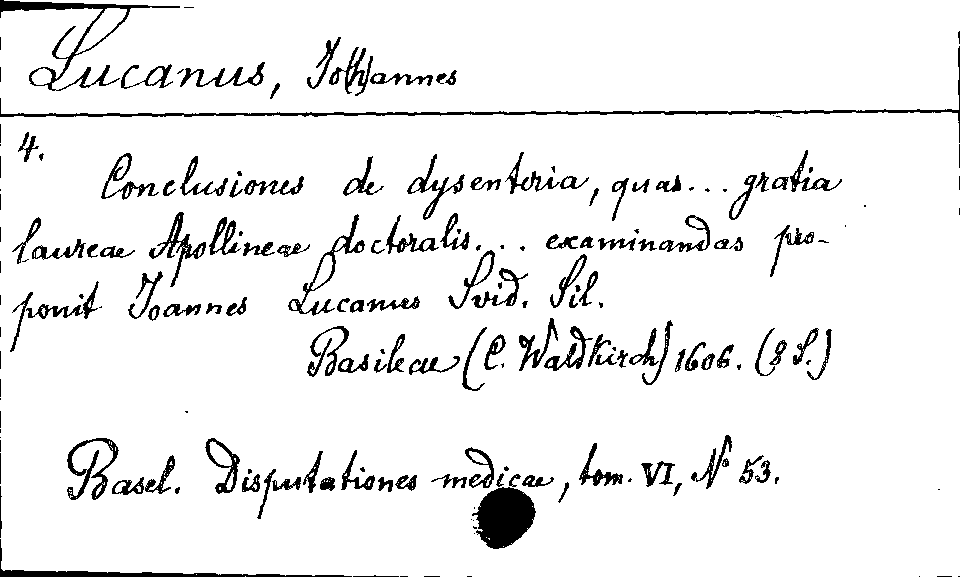 Lucanus, Jo(h)annes
4.
Conclusiones de dysenteria, quas... gratia
laureae Apollineae doctoralis... examinandas pro-
ponit Joannes Lucanus Svid. Sil.
Basileae (C. Waldkirch) 1606. (8 S.)
Basel. Disputationes medicae, tom. VI, N° 53.